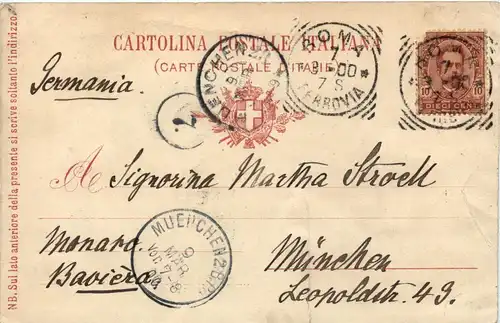 CARTOLINA POSTALE ITALIANA
(CARTE POSTALE D'ITALIE)
ROMA
7
3-00
7 S
FERROVIA
10 10
DIECI CENT
Germania
2
A Signorina Martha Stroell
MUENCHEN 2 B.P.
9
MRR
VOR. 7-8
Monaco
Baviera
München
Leopoldstr. 49.
NB. Sul lato anteriore della presente si scrive soltanto l'indirizzo.